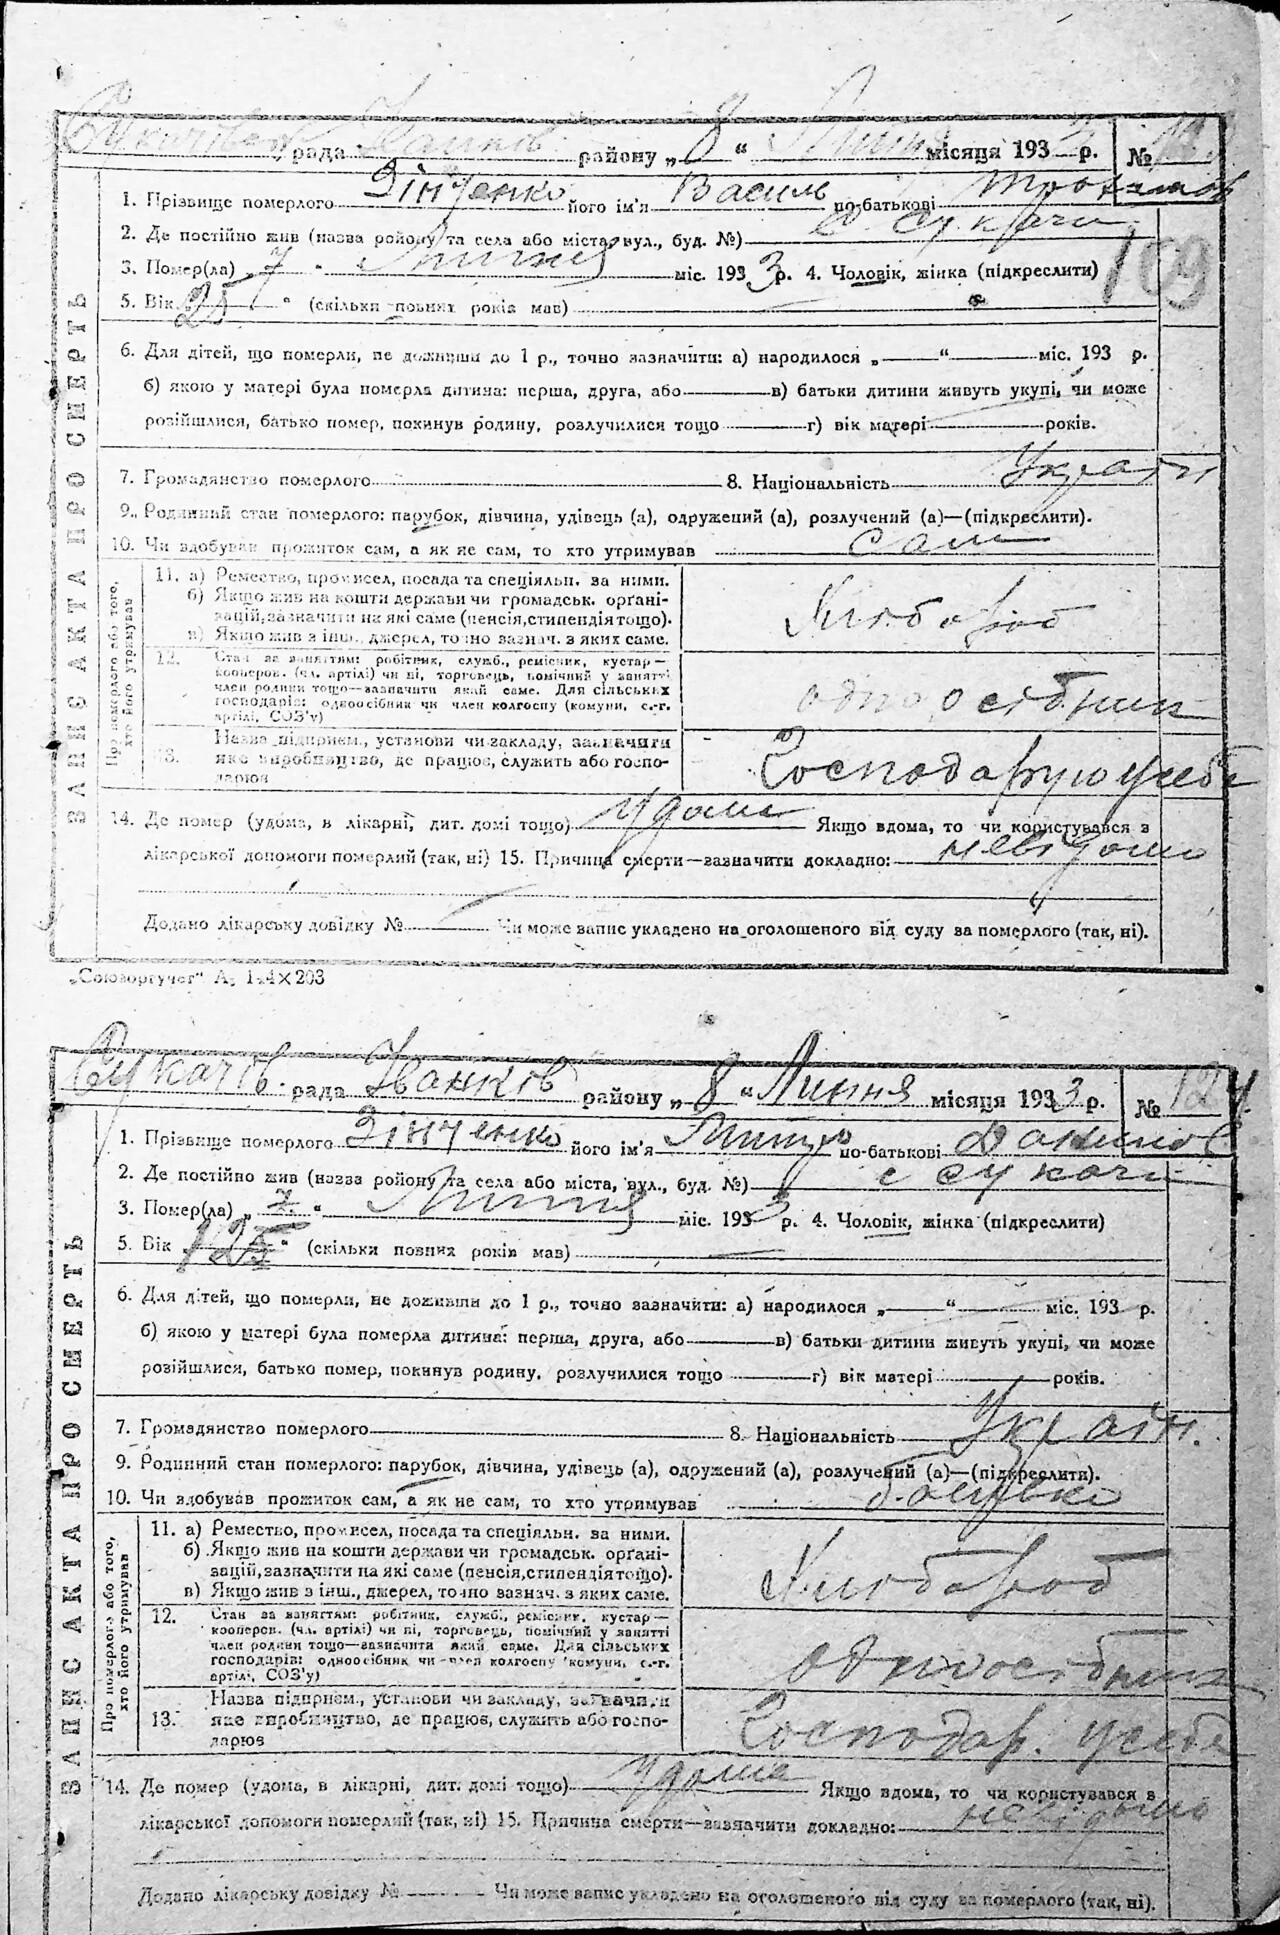 рада району „ 8 “ місяця 193 р. №
ЗАПИС АКТА ПРО СМЕРТЬ
1. Прізвище померлого Зінченко його ім'я Василь по-батькові
2. Де постійно жив (назва району та села або міста, вул., буд. №) с. Сукачі
3. Помер(ла) „ 7 “ Липня міс. 193 3 р. 4. Чоловік, жінка (підкреслити)
109
5. Вік „ 25 “ (скільки повних років мав)
6. Для дітей, що померли, не доживши до 1 р., точно зазначити: а) народилося „ “ міс. 193 р.
б) якою у матері була померла дитина: перша, друга, або в) батьки дитини живуть укупі, чи може
розійшлися, батько помер, покинув родину, розлучилися тощо г) вік матері років.
7. Громадянство померлого 8. Національність Україн
9. Родинний стан померлого: парубок, дівчина, удівець (а), одружений (а), розлучений (а)—(підкреслити).
10. Чи здобував прожиток сам, а як не сам, то хто утримував сам
Про померлого або того, хто його утримував
11. а) Ремество, промисел, посада та спеціяльн. за ними.
б) Якщо жив на кошти держави чи громадськ. органі-
зацій, зазначити на які саме (пенсія, стипендія тощо).
в) Якщо жив з інш. джерел, точно зазнач. з яких саме.
Хлібороб
12. Стан за заняттям: робітник, служб., ремісник, кустар—
кооперов. (чл. артілі) чи ні, торговець, помічний у занятті
член родини тощо—зазначити який саме. Для сільських
господарів: одноосібник чи член колгоспу (комуни, с.-г.
артілі, СОЗ'у)
одноосібник
13. Назва підприєм., установи чи закладу, зазначити
яке виробництво, де працює, служить або госпо-
дарює
Господарую у себе
14. Де помер (удома, в лікарні, дит. домі тощо) удома Якщо вдома, то чи користувався з
лікарської допомоги померлий (так, ні) 15. Причина смерти—зазначити докладно: невідомо
Додано лікарську довідку № Чи може запис укладено на оголошеного від суду за померлого (так, ні).
„Союзоргучет“ А, 144×203
Сукачів. рада Іванків району „ 8 “ Липня місяця 193 3 р. № 124
ЗАПИС АКТА ПРО СМЕРТЬ
1. Прізвище померлого Зінченко його ім'я по-батькові
2. Де постійно жив (назва району та села або міста, вул., буд. №) с Сукачі
3. Помер(ла) „ 7 “ Липня міс. 193 3 р. 4. Чоловік, жінка (підкреслити)
5. Вік (скільки повних років мав)
6. Для дітей, що померли, не доживши до 1 р., точно зазначити: а) народилося „ “ міс. 193 р.
б) якою у матері була померла дитина: перша, друга, або в) батьки дитини живуть укупі, чи може
розійшлися, батько помер, покинув родину, розлучилися тощо г) вік матері років.
7. Громадянство померлого 8. Національність Україн.
9. Родинний стан померлого: парубок, дівчина, удівець (а), одружений (а), розлучений (а)—(підкреслити).
10. Чи здобував прожиток сам, а як не сам, то хто утримував
Про померлого або того, хто його утримував
11. а) Ремество, промисел, посада та спеціяльн. за ними.
б) Якщо жив на кошти держави чи громадськ. органі-
зацій, зазначити на які саме (пенсія, стипендія тощо).
в) Якщо жив з інш., джерел, точно зазнач. з яких саме.
Хлібороб
12. Стан за заняттям: робітник, служб., ремісник, кустар—
кооперов. (чл. артілі) чи ні, торговець, помічний у занятті
член родини тощо—зазначити який саме. Для сільських
господарів: одноосібник чи член колгоспу (комуни, с.-г.
артілі, СОЗ'у)
одноосібник
13. Назва підприєм., установи чи закладу, зазначити
яке виробництво, де працює, служить або госпо-
дарює
Господар. у себе
14. Де помер (удома, в лікарні, дит. домі тощо) удома Якщо вдома, то чи користувався з
лікарської допомоги померлий (так, ні) 15. Причина смерти—зазначити докладно: невідомо
Додано лікарську довідку № Чи може запис укладено на оголошеного від суду за померлого (так, ні).